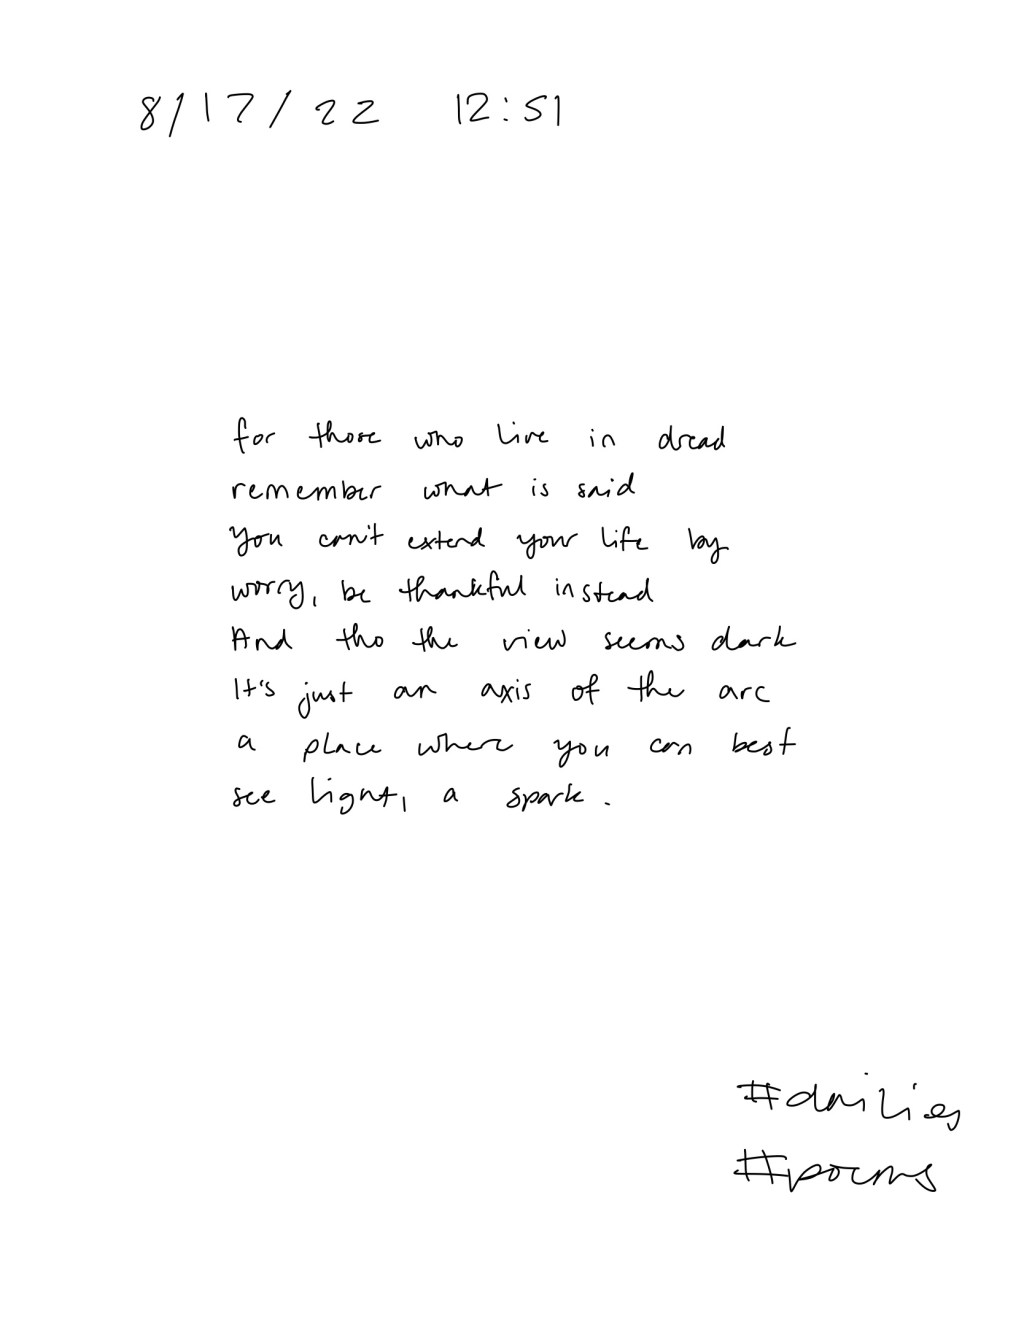 8/17/22 12:51
for those who live in dread
remember what is said
you can't extend your life by
worry, be thankful instead
And tho the view seems dark
It's just an axis of the arc
a place where you can best
see light, a spark.
#dailies
#poems